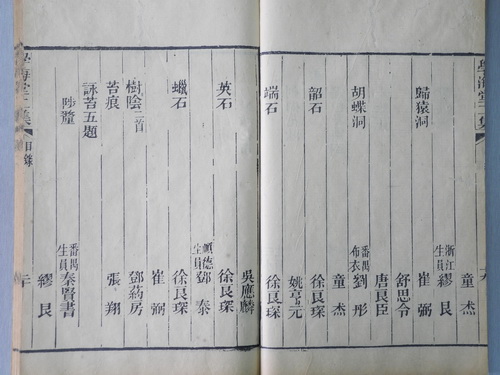 童杰
浙江生員 繆艮
歸猿洞 崔弼
舒思令
唐良臣
胡蝶洞 番禺布衣 劉彤
童杰
韶石 徐良琛
姚亨元
端石 徐良琛
吳應麟
英石 徐良琛
順德生員 鄧泰
蠟石 徐良琛
崔弼
樹陰二首 鄧葯房
苔痕 張翔
詠苔五題
陟釐 番禺生員 秦賢書
繆艮
學海堂二集 目錄